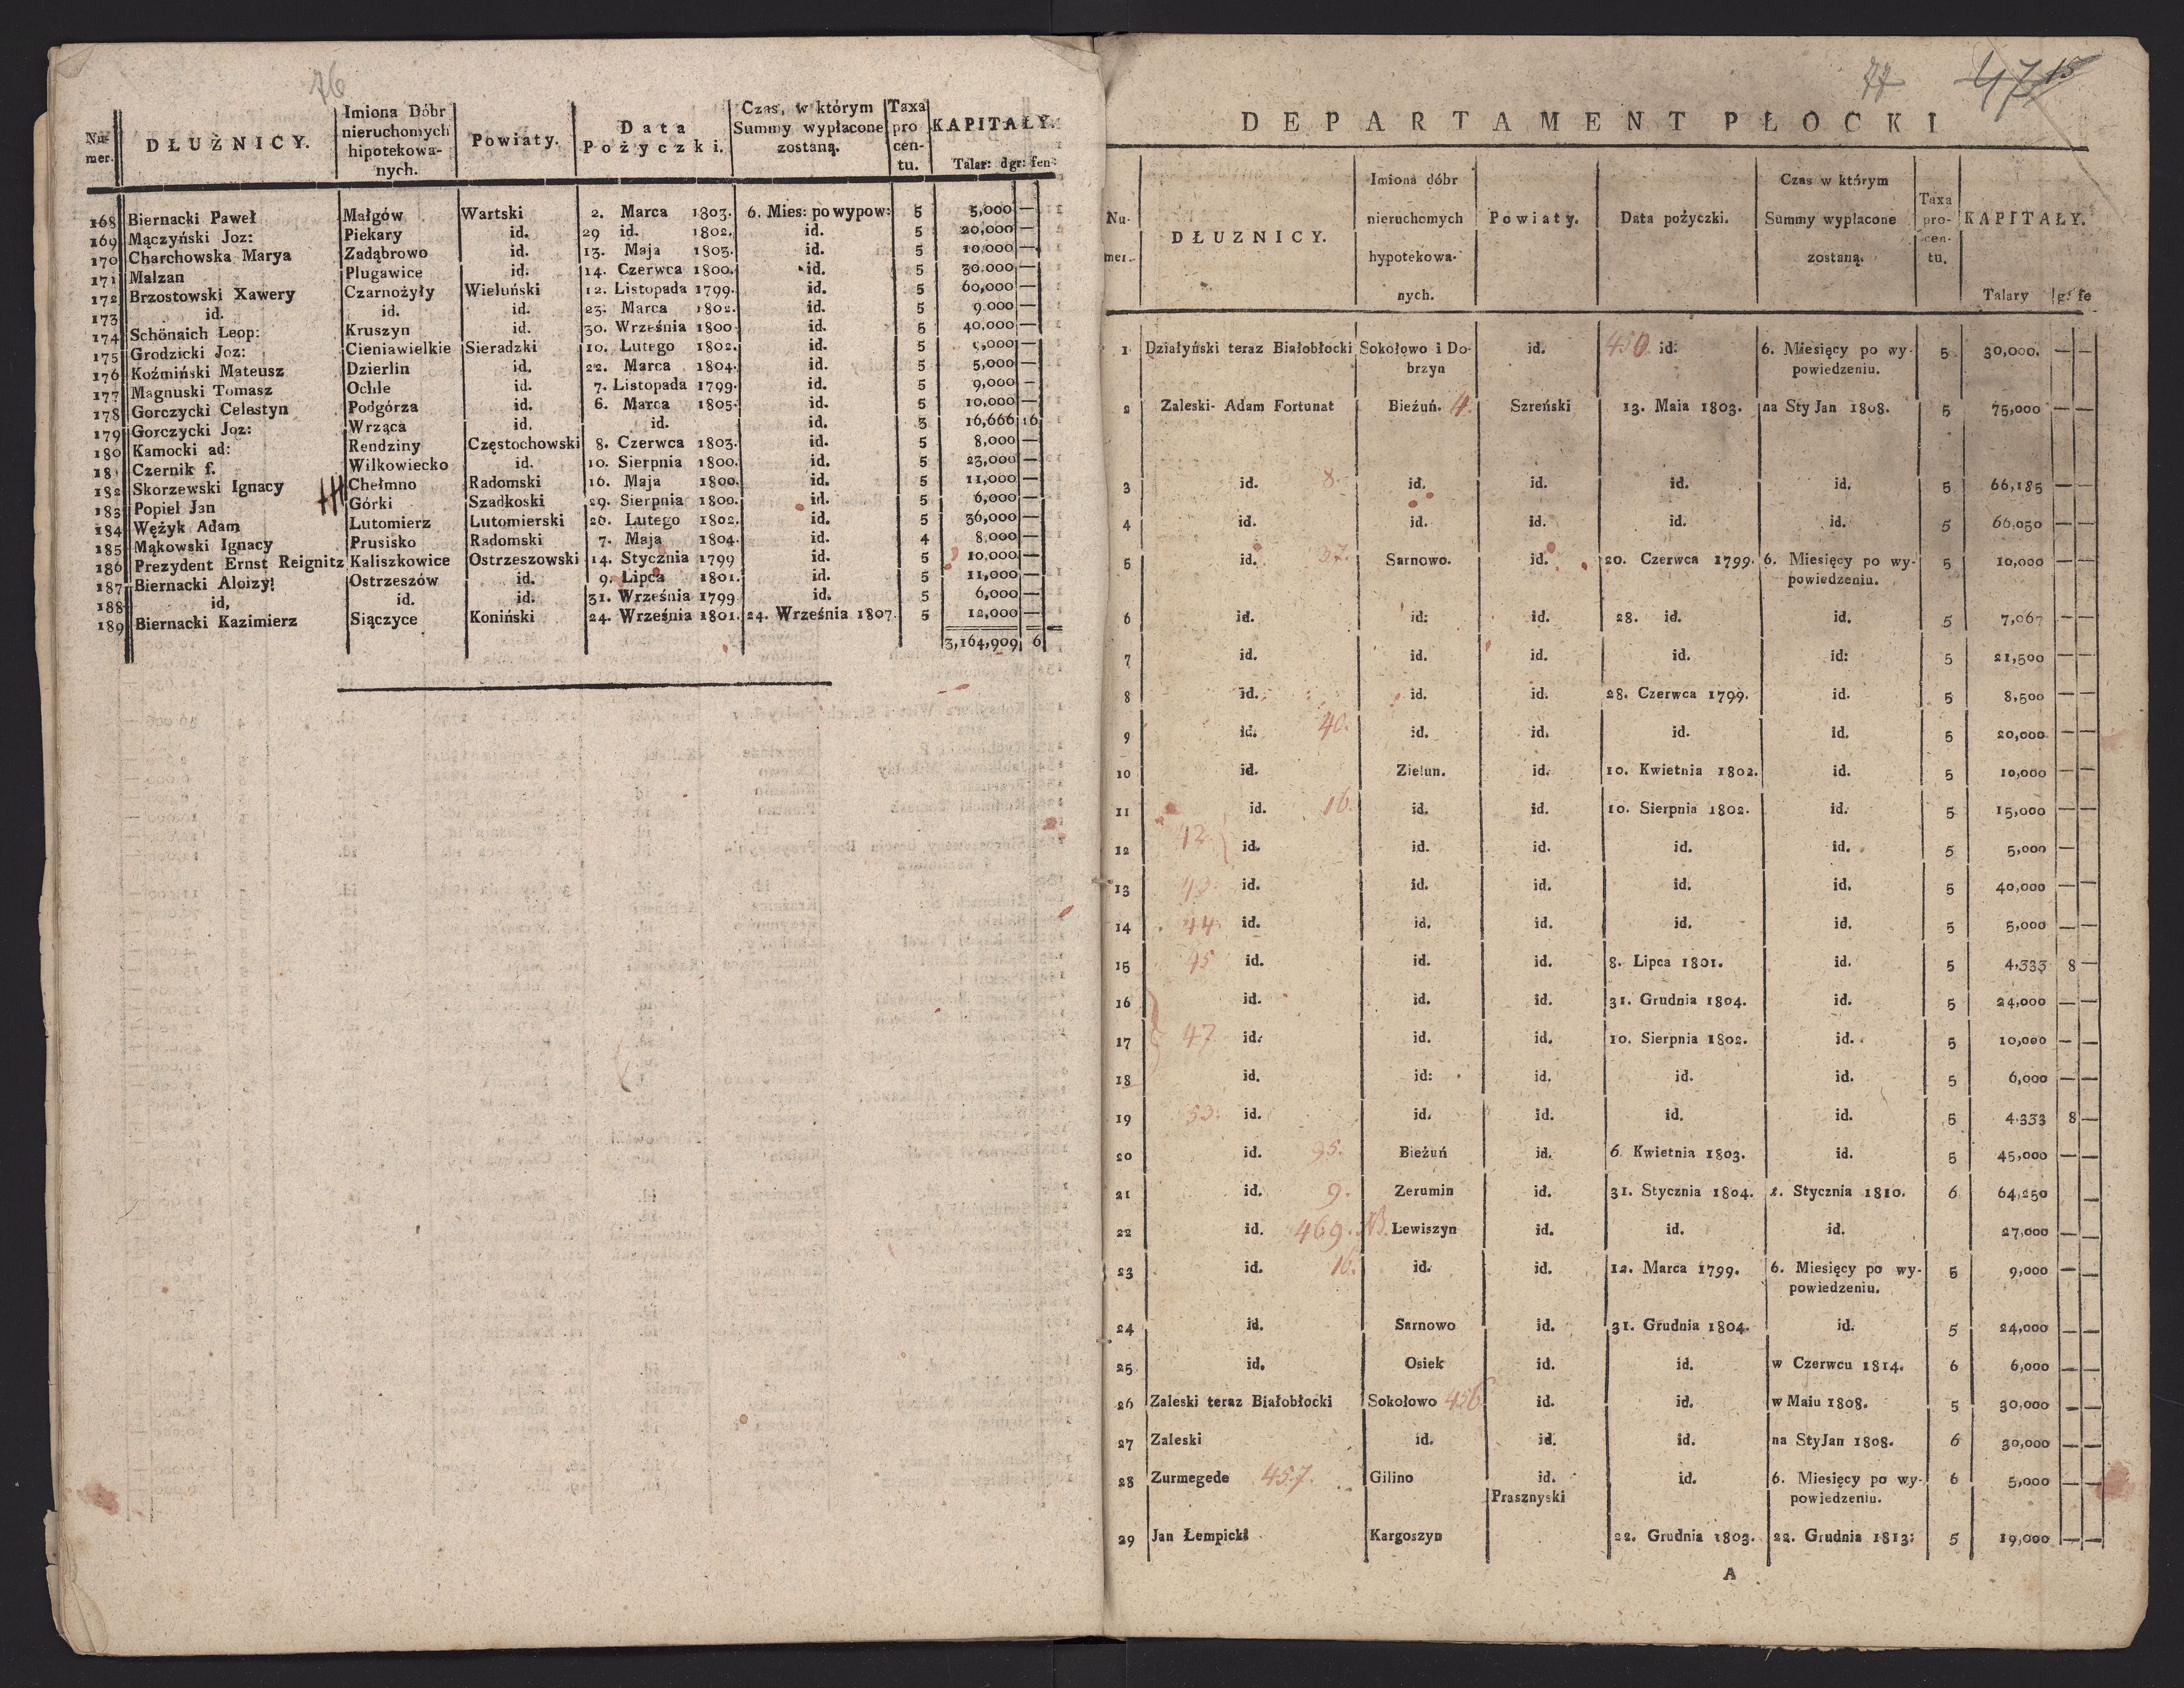 76
Nu-mer. DŁUŻNICY. Imiona Dóbr nieruchomych hipotekowa-nych. Powiaty. Data Pożyczki. Czas, w którym Summy wypłacone zostaną. Taxa pro cen-tu. KAPITAŁY. Talar: dgr: fen:
168 Biernacki Paweł Małgów Wartski 2. Marca 1803. 6. Mies: po wypow: 5 5,000 —
169 Mączyński Joz: Piekary id. 29 id. 1802. id. 5 20,000 —
170 Charchowska Marya Zadąbrowo id. 13. Maja 1803. id. 5 10,000 —
171 Malzan Plugawice id. 14. Czerwca 1800. id. 5 30.000 —
172 Brzostowski Xawery Czarnożyły Wieluński 12. Listopada 1799. id. 5 60,000 —
173 id. id. id. 23. Marca 1802. id. 5 9.000 —
174 Schönaich Leop: Kruszyn id. 30. Września 1800 id. 5 40,000 —
175 Grodzicki Joz: Cieniawielkie Sieradzki 10. Lutego 1802. id. 5 ,000 —
176 Koźmiński Mateusz Dzierlin id. 22. Marca 1804. id. 5 5,000 —
177 Magnuski Tomasz Ochle id. 7. Listopada 1799. id. 5 9,000 —
178 Gorczycki Celestyn Podgórza id. 6. Marca 1805. id. 5 10,000 —
179 Gorczycki Joz: Wrząca id. id. id. 3 16,666 16
180 Kamocki ad: Rendziny Częstochowski 8. Czerwca 1803. id. 5 8,000 —
181 Czernik f. Wilkowiecko id. 10. Sierpnia 1800. id. 5 23,000 —
182 Skorzewski Ignacy Chełmno Radomski 16. Maja 1800. id. 5 11,000 —
183 Popiel Jan Górki Szadkoski 29. Sierpnia 1800. id. 5 6,000 —
184 Wężyk Adam Lutomierz Lutomierski 20. Lutego 1802. id. 5 36,000 —
185 Mąkowski Ignacy Prusisko Radomski 7. Maja 1804. id. 4 8,000 —
186 Prezydent Ernst Reignitz Kaliszkowice Ostrzeszowski 14. Stycznia 1799 id. 5 10,000 —
187 Biernacki Aloizy: Ostrzeszów id. 9. Lipca 1801. id. 5 11,000 —
188 id, id. id. 31. Września 1799 id. 5 6,000 —
189 Biernacki Kazimierz Siączyce Koniński 24. Września 1801. 24. Września 1807. 5 12,000 —
3,164,909 6 —
77 47 15
DEPARTAMENT PŁOCKI
Nu-mer. DŁUZNICY. Imiona dóbr nieruchomych hypotekowa-nych. Powiaty. Data pożyczki. Czas w którym Summy wypłacone zostaną. Taxa pro-cen-tu. KAPITAŁY. Talary g: fe
1 Działyński teraz Białobłocki Sokołowo i Do-brzyn id. 450. id. 6. Miesięcy po wy-powiedzeniu. 5 30,000. — —
2 Zaleski- Adam Fortunat Bieżuń. 4. Szreński 13. Maia 1803. na Sty Jan 1808. 5 75,000 — —
3 id. 8. id. id. id. id. 5 66,185 — —
4 id. id. id. id. id. 5 66,050 — —
5 id. 37. Sarnowo. id. 20. Czerwca 1799. 6. Miesięcy po wy-powiedzeniu. 5 10,000 — —
6 id. id: id. 28. id. id. 5 7,067 — —
7 id. id. id. id. id: 5 21,500 — —
8 id. id. id. 28. Czerwca 1799. id. 5 8,500 — —
9 id. 40. id. id. id. id. 5 20,000 — —
10 id. Zielun. id. 10. Kwietnia 1802. id. 5 10,000 — —
11 id. 16. id. id. 10. Sierpnia 1802. id. 5 15,000 — —
12 42. id. id. id. id. id. 5 5,000 —
13 43. id. id. id. id. id. 5 40,000 — —
14 44. id. id. id. id. id. 5 5,000 — —
15 45 id. id. id. 8. Lipca 1801. id. 5 4,333 8 —
16 id. id. id. 31. Grudnia 1804. id. 5 24,000 — —
17 47. id. id. id. 10. Sierpnia 1802. id. 5 10,000 — —
18 id. id: id. id. id. 5 6,000 — —
19 53. id. id. id. id. id. 5 4.333 8 —
20 id. 95. Bieżuń id. 6. Kwietnia 1803. id. 5 45,000 — —
21 id. 9. Zerumin id. 31. Stycznia 1804. 2. Stycznia 1810. 6 64,250 —
22 id. 469. NB. Lewiszyn id. id. id. 27,000 — —
23 id. 16. id. id. 12. Marca 1799. 6. Miesięcy po wy-powiedzeniu. 5 9,000 — —
24 id. Sarnowo id. 31. Grudnia 1804. id. 5 24,000 — —
25 id. Osiek id. id. w Czerwcu 1814. 6 6,000 — —
26 Zaleski teraz Białobłocki Sokołowo 456. id. id. w Maiu 1808. 5 30,000 — —
27 Zaleski id. id. id. na StyJan 1808. 6 30,000 — —
28 Zurmegede 457. Gilino id. id. 6. Miesięcy po wy-powiedzeniu. 6 5,000 — —
Prasznyski
29 Jan Łempicki Kargoszyn 22. Grudnia 1803. 22. Grudnia 1813: 5 19,000 — —
A